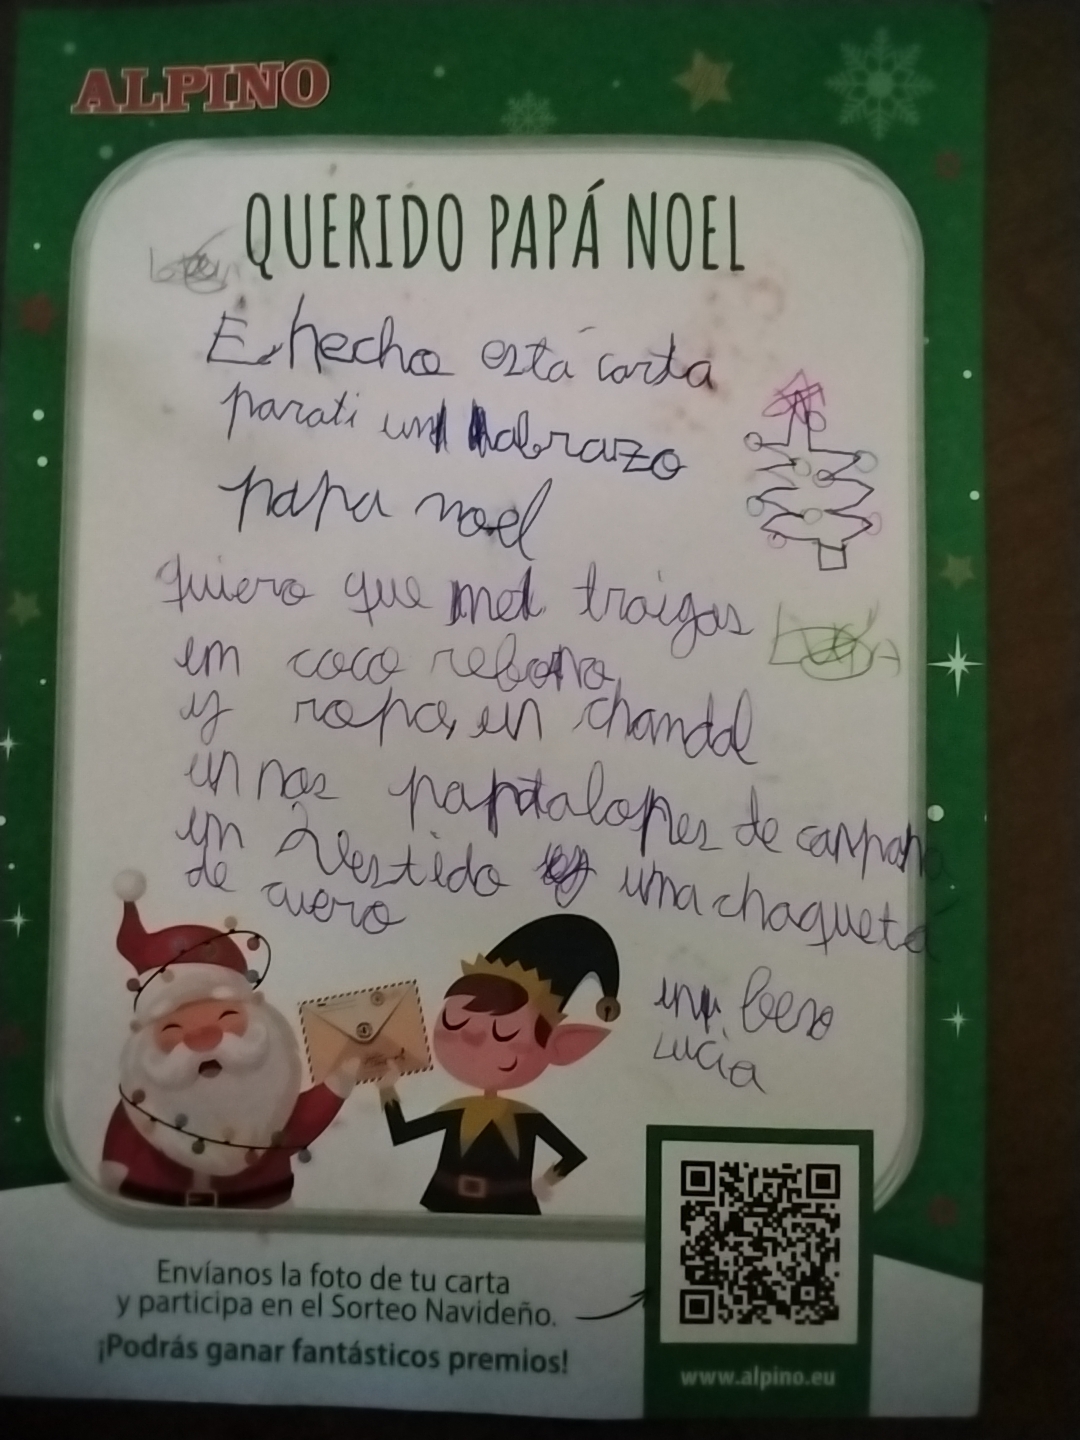 ALPINO
QUERIDO PAPÁ NOEL
E hecho está carta
parati un abrazo
papa noel
quiero que me traigas
un coco rebono
y ropa, un chandal
un nos pantalones de campana
un vestido y una chaqueta
de cuero
un beso
Lucia
Envíanos la foto de tu carta
y participa en el Sorteo Navideño.
¡Podrás ganar fantásticos premios!
www.alpino.eu